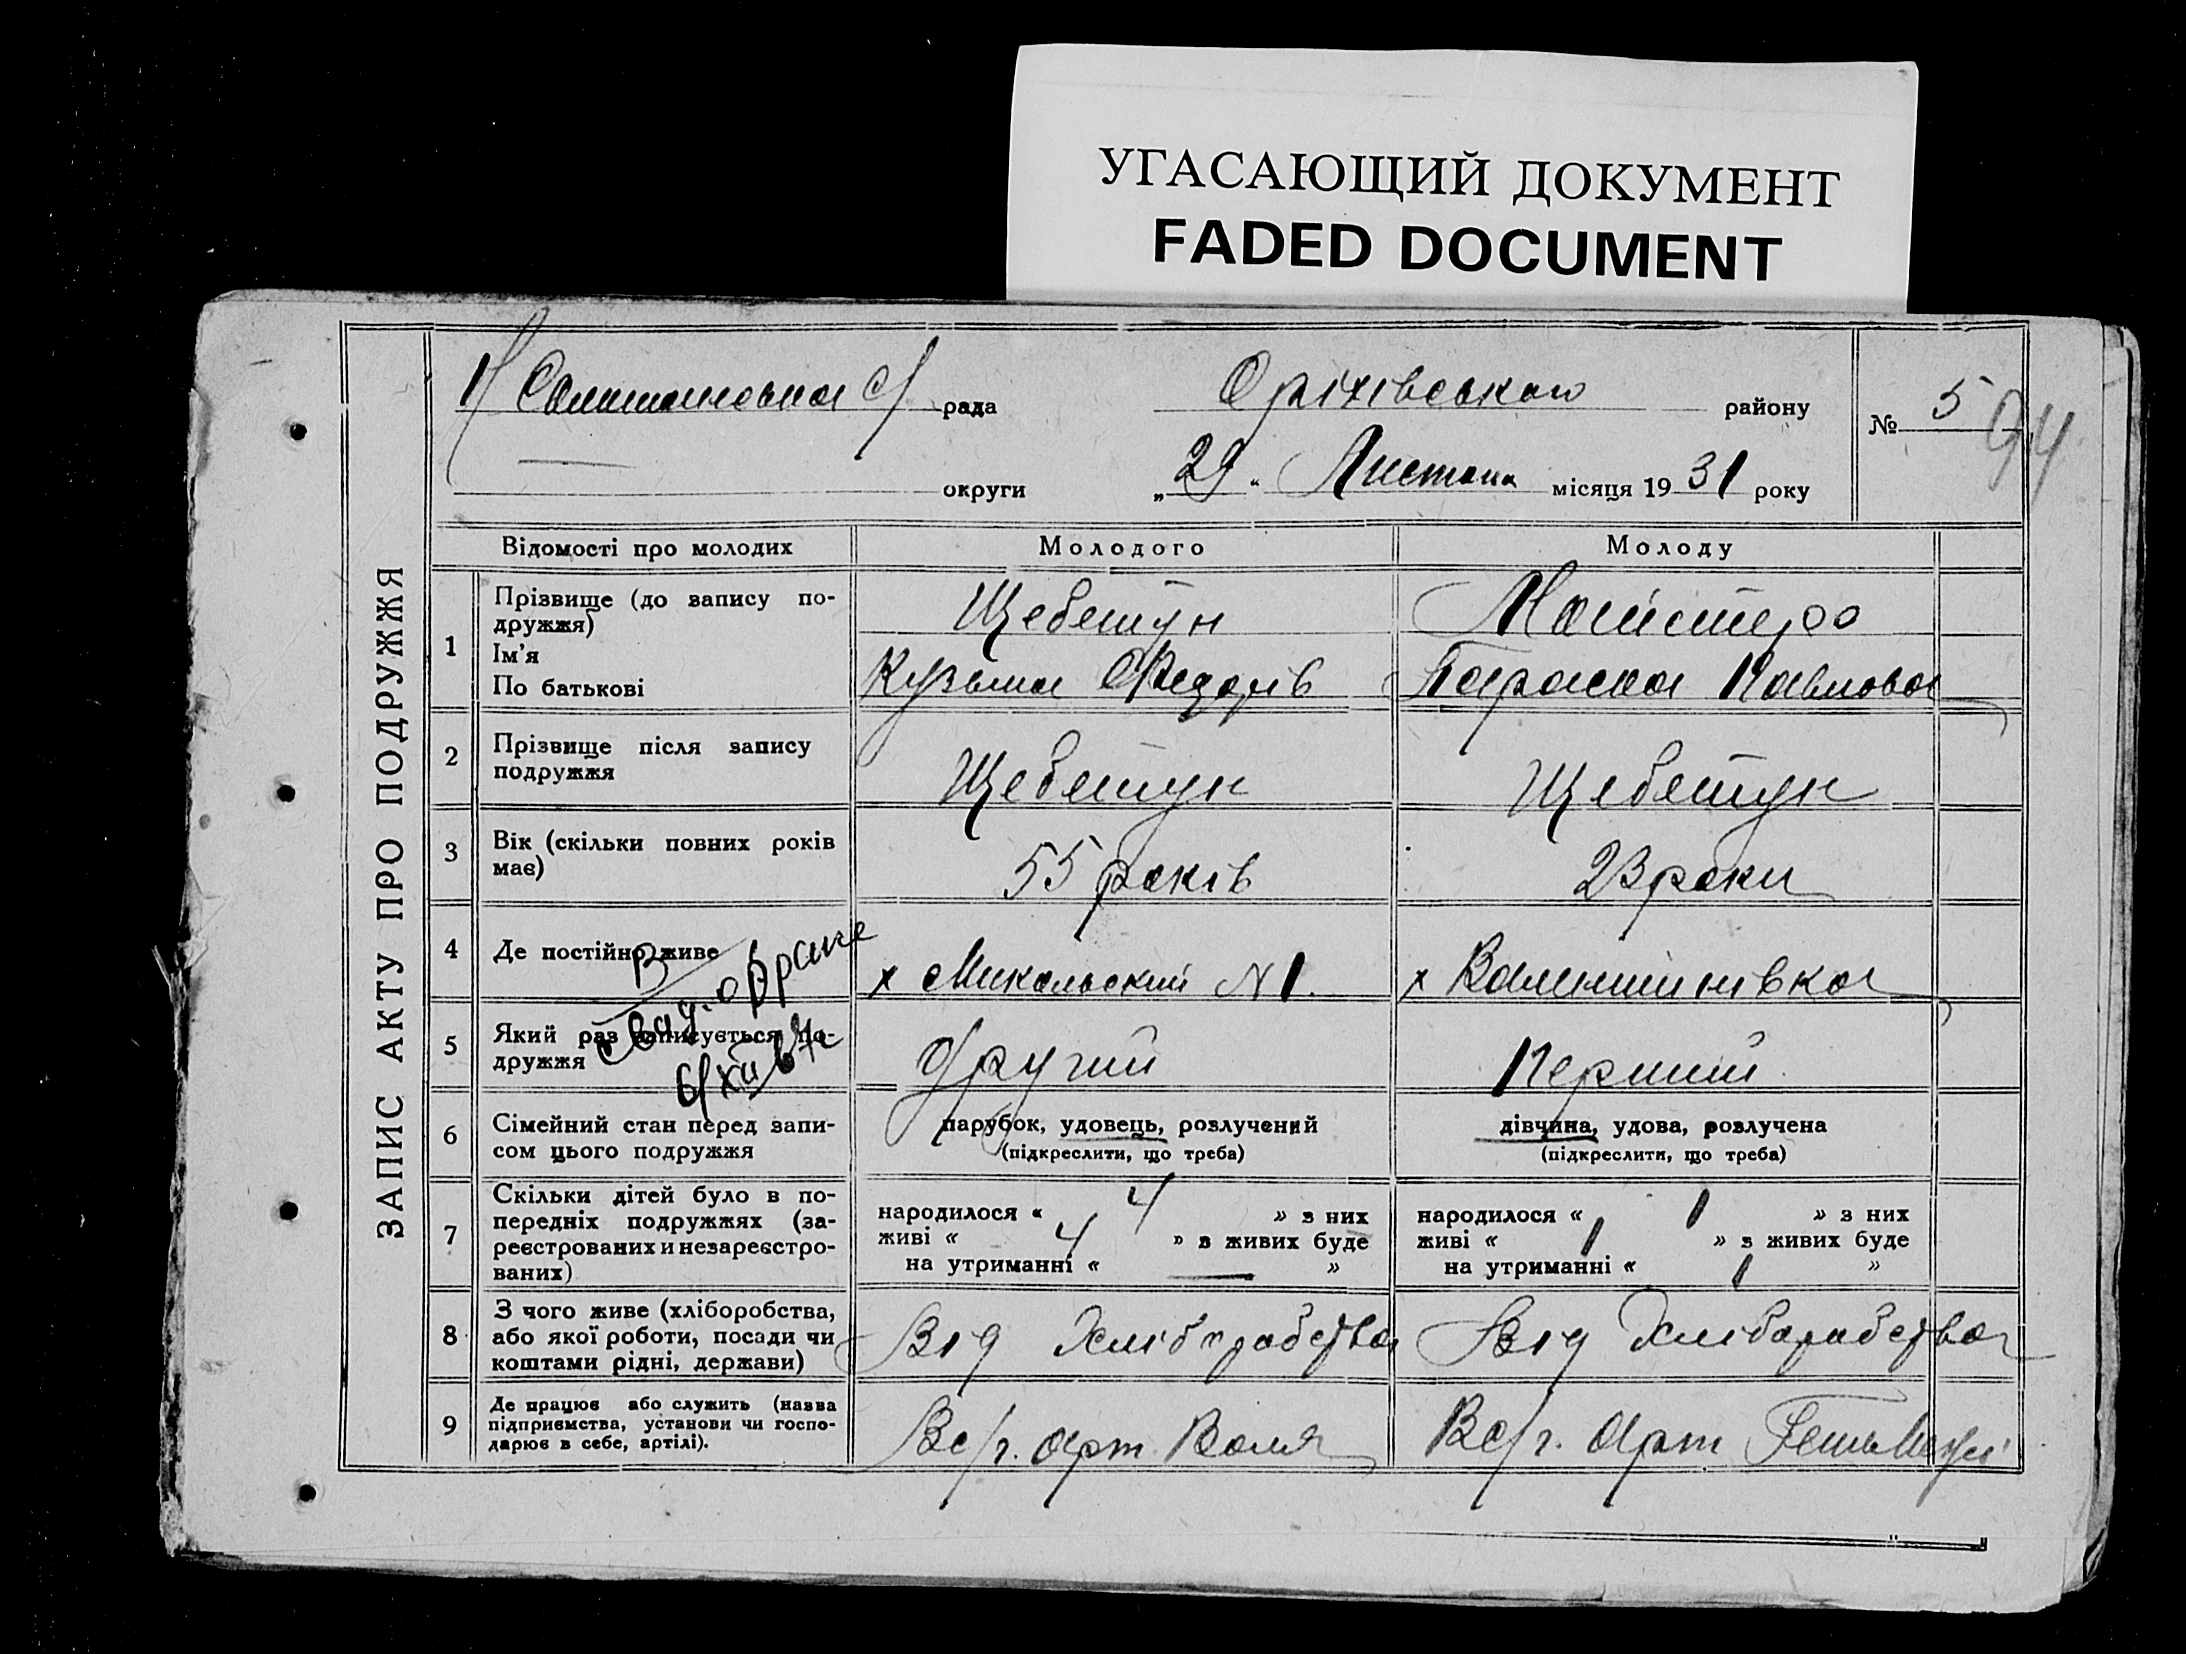 УГАСАЮЩИЙ ДОКУМЕНТ
FADED DOCUMENT
ЗАПИС АКТУ ПРО ПОДРУЖЖЯ
с/ рада
Оріхівського району
№ 5
94
округи
„29“ Листопа місяця 1931 року
Відомості про молодих
Молодого
Молоду
1
Прізвище (до запису по-
дружжя)
Ім’я
По батькові
Щебетун
Кузьма Федорів
Магістеро
Параска Павлова
2
Прізвище після запису
подружжя
Щебетун
Щебетун
3
Вік (скільки повних років
має)
55 років
23 роки
4
Де постійно живе
х Микольский N 1.
х Валинтинівка
5
Який раз записується по-
дружжя
другий
Перший
6
Сімейний стан перед запи-
сом цього подружжя
парубок, удовець, розлучений
(підкреслити, що треба)
дівчина, удова, розлучена
(підкреслити, що треба)
7
Скільки дітей було в по-
передніх подружжях (за-
реєстрованих и незареєстро-
ваних)
народилося « 4 » з них
живі « 4 » з живих буде
на утриманні « — »
народилося « 1 » з них
живі « 1 » з живих буде
на утриманні « 1 »
8
З чого живе (хліборобства,
або якої роботи, посади чи
коштами рідні, держави)
Від Хліборобства
Від Хліборобства
9
Де працює або служить (назва
підприємства, установи чи госпо-
дарює в себе, артілі).
В с/г. арт Воля
В с/г. арт